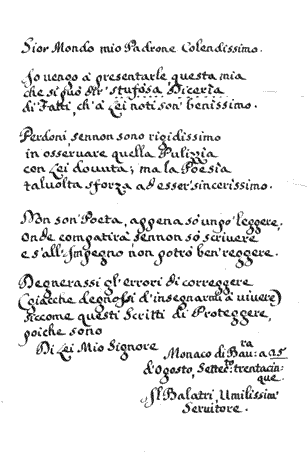 Sior Mondo mio Padrone Colendissimo.
Io vengo à presentarle questa mia
che si può dir' stufosa Diceria
di Fatti, ch' à Lei noti son benissimo.
Perdoni, sennon sono rigidissimo
in osservare quella Pulizzia
con Lei dovuta; ma la Poesia
talvolta sforza ad esser' sincerissimo.
Non son' Poeta, appena sò un po' leggere,
Onde compatirà sennon sò scrivere
e s' all' Impegno non potrò ben' reggere.
Degnerassi gl' errori di correggere
(Giacche degnossi d' insegnarmi a vivere)
siccome questi Scritti di Proteggere,
poiche sono
Di Lei Mio Signore
Monaco di Bau:ra a 25
d' Ogosto, Sette:to trentacin=
que.
Il Balatri, Umilissim'
Servitore.